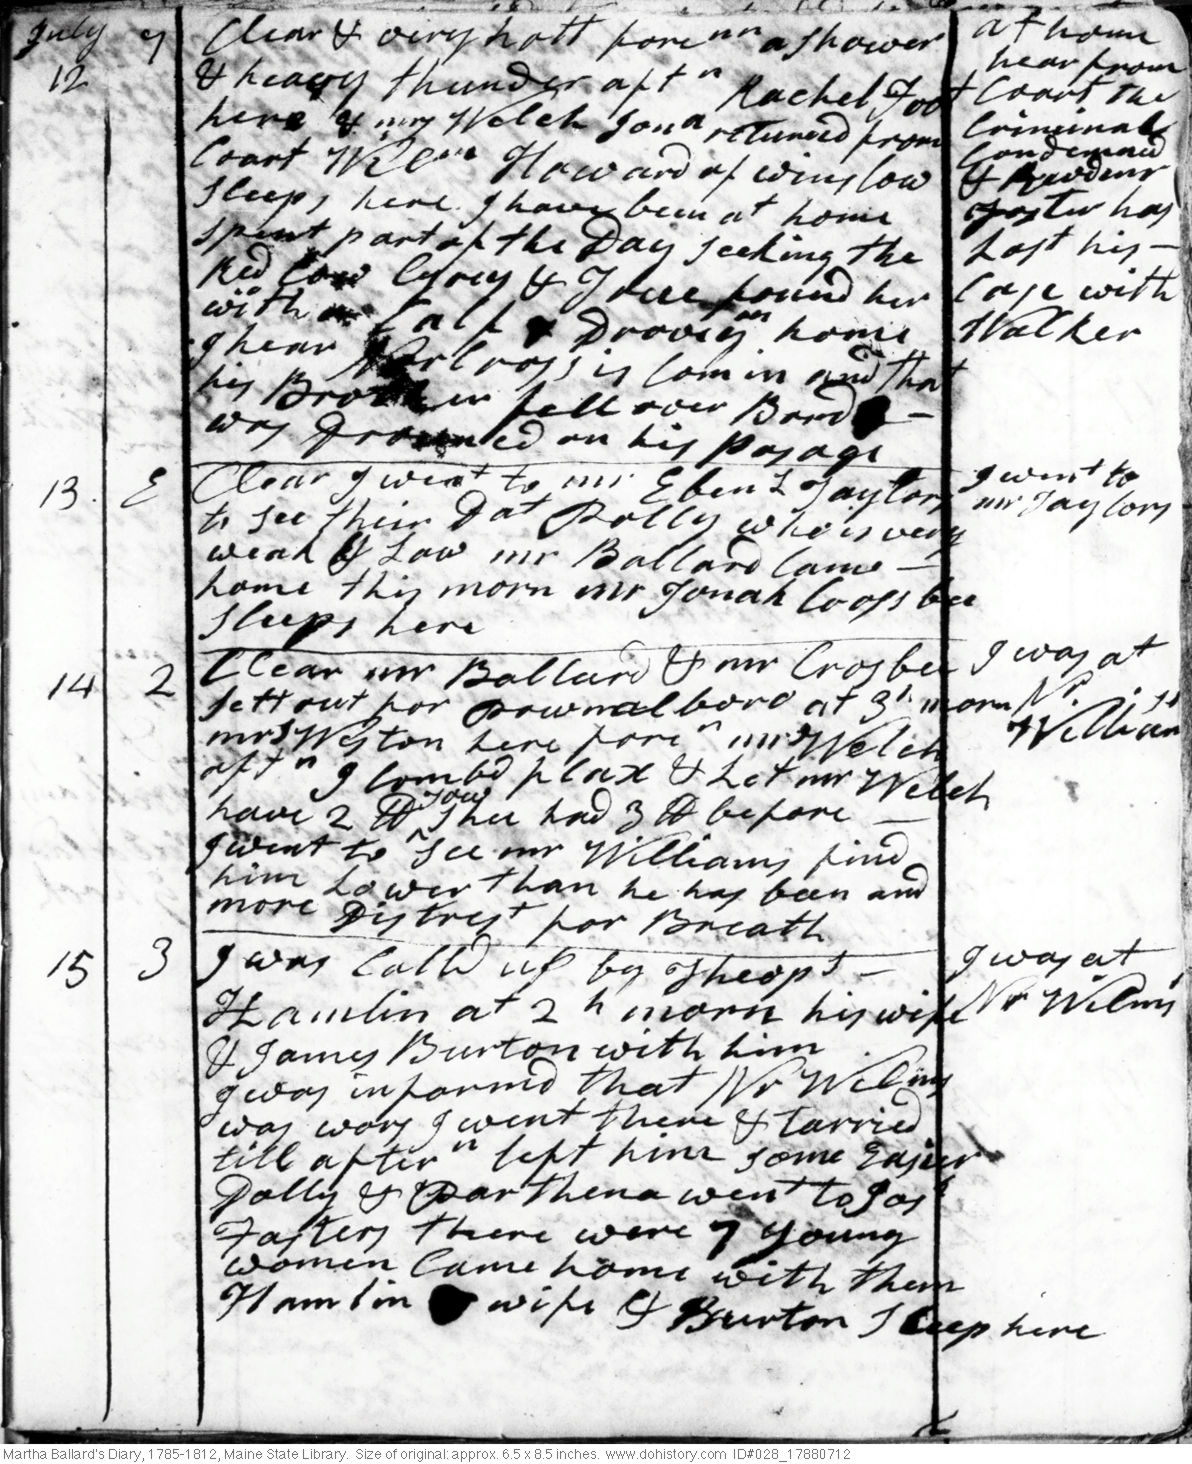 July 7 Clear & very hott foren a shower
12 & heavy thunder aftn Rachel Foot
here & mrs Welch Jona returned from
Coart Wilm Howard of winslow
sleeps here. I have been at home
spent part of the Day seeking the
Red Cow Cyrus & I found her
with a Calf & Drove home
I hear NorCross is Com in and that
his Brother fell over Bord –
was Drowned on his pasage
at home
hear from
Coart the
Criminals
Condemned
&
Foster has
Lost his –
Case with
Walker
13. E Clear I went to mr Ebenz Taylors
to see their Dat Polly who is very
weak & Low mr Ballard Came –
home this morn mr Jonah Crosbee
sleeps here
I went to
mr Taylors
14 2 Clear mr Ballard & mr Crosbee
sett out for pownalboro at 3h morn
mrs Weston here foren mrs Welch
aftn I Combd flax & Let mr Welch
have 2 lb Tow shee had 3 lb before –
I went to see mr Williams find
him Lower than he has been and
more Distrest for Breath
I was at
Mr
Williams
15 3 I was Calld up by Theops –
Hamlin at 2 h morn his wife
& James Burton with him
I was informd that Mr Wilms
was wors I went there & tarried
till aftern left him some Easier
Dolly & Parthena went to Jos
Fosters there were 7 young
women Came home with them
Hamlin wife & Burton Sleep here
I was at
Mr Wilms
Martha Ballard's Diary, 1785-1812, Maine State Library. Size of original: approx. 6.5 x 8.5 inches. www.dohistory.com ID#028_17880712